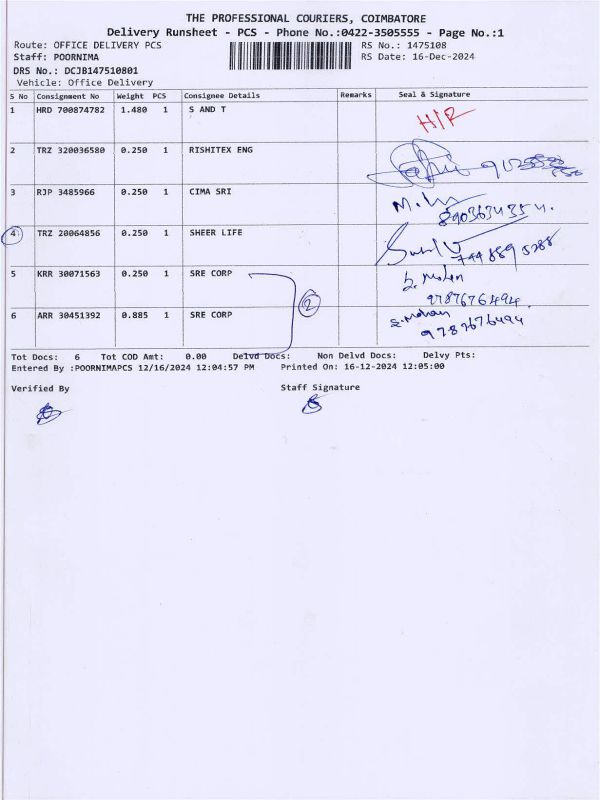 THE PROFESSIONAL COURIERS, COIMBATORE
Delivery Runsheet - PCS - Phone No.:0422-3505555 - Page No.:1
Route: OFFICE DELIVERY PCS RS No.: 1475108
Staff: POORNIMA RS Date: 16-Dec-2024
DRS No.: DCJB147510801
Vehicle: Office Delivery
S No Consignment No Weight PCS Consignee Details Remarks Seal & Signature
1 HRD 700874782 1.480 1 S AND T H/R
2 TRZ 320036580 0.250 1 RISHITEX ENG
3 RJP 3485966 0.250 1 CIMA SRI
8903634354.
4 TRZ 20064856 0.250 1 SHEER LIFE
5 KRR 30071563 0.250 1 SRE CORP S. Mohan
9787676494.
2
6 ARR 30451392 0.885 1 SRE CORP S. Mohan
9787676494
Tot Docs: 6 Tot COD Amt: 0.00 Delvd Docs: Non Delvd Docs: Delvy Pts:
Entered By :POORNIMAPCS 12/16/2024 12:04:57 PM Printed On: 16-12-2024 12:05:00
Verified By Staff Signature